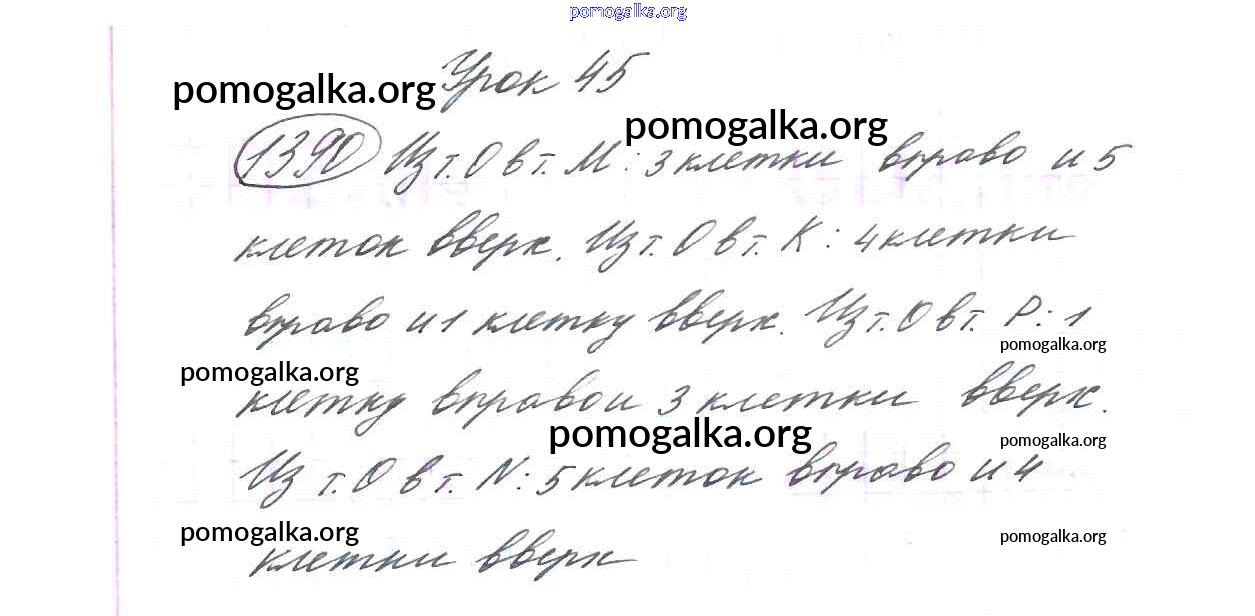 pomogalka.org
Урок 45
pomogalka.org
pomogalka.org
1390 Из т. О в т. М: 3 клетки вправо и 5
клеток вверх. Из т. О в т. К: 4 клетки
вправо и 1 клетку вверх. Из т. О в т. Р: 1
pomogalka.org
pomogalka.org
клетку вправо и 3 клетки вверх.
pomogalka.org
pomogalka.org
Из т. О в т. N: 5 клеток вправо и 4
pomogalka.org
pomogalka.org
клетки вверх